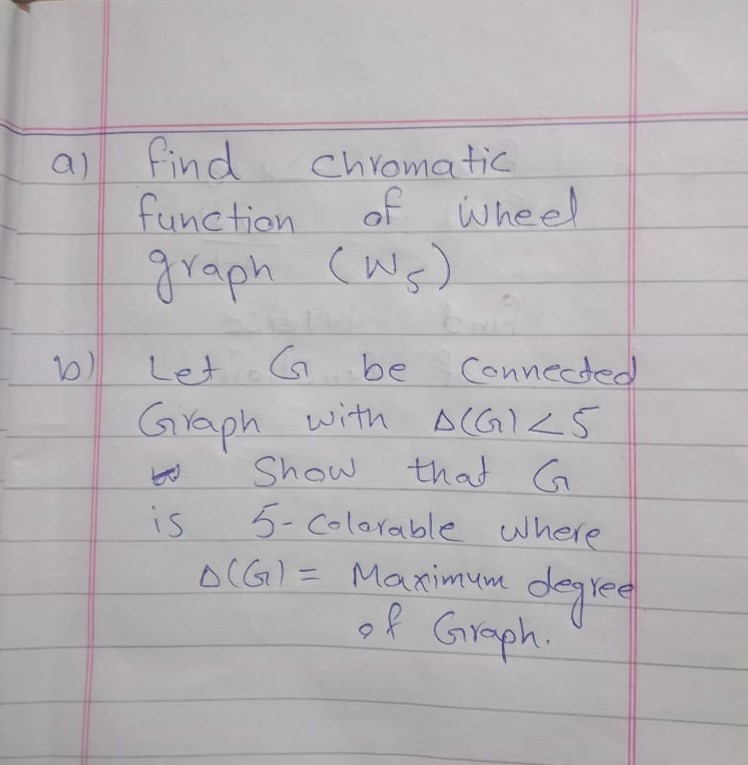 a) find chromatic
function of wheel
graph (W5)
b) Let G be Connected
Graph with Δ(G) < 5
Show that G
is 5-Colorable where
Δ(G) = Maximum degree
of Graph.